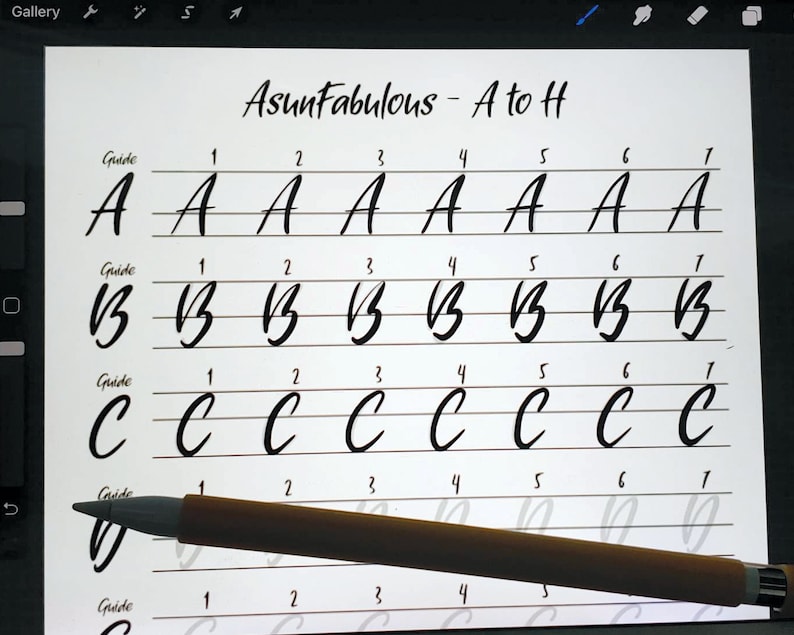 Gallery
AsunFabulous - A to H
Guide 1 2 3 4 5 6 7
A A A A A A A A
Guide 1 2 3 4 5 6 7
B B B B B B B B
Guide 1 2 3 4 5 6 7
C C C C C C C C
Guide 1 2 3 4 5 6 7
D D D D D D D D
Guide 1 2 3 4 5 6 7